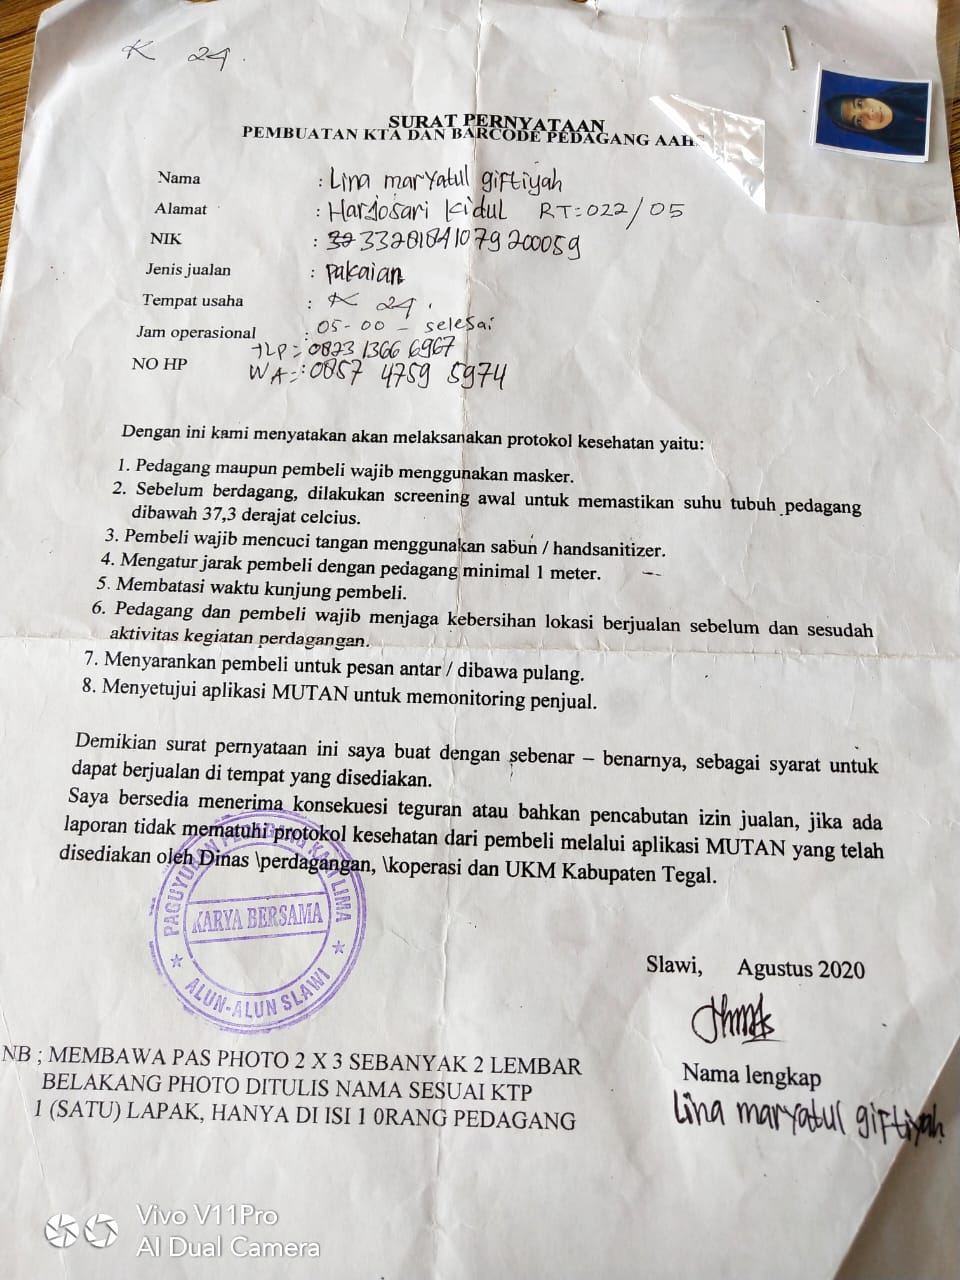 K 24.
SURAT PERNYATAAN
PEMBUATAN KTA DAN BARCODE PEDAGANG AAH
Nama : Lina maryatul giftiyah
Alamat : Harjosari Kidul RT:022/05
NIK : 32 3328184107920059
Jenis jualan : pakaian
Tempat usaha : K 24.
Jam operasional : 05-00 - selesai
TLP = 0823 1366 6967
NO HP WA = : 0857 4759 5974
Dengan ini kami menyatakan akan melaksanakan protokol kesehatan yaitu:
1. Pedagang maupun pembeli wajib menggunakan masker.
2. Sebelum berdagang, dilakukan screening awal untuk memastikan suhu tubuh pedagang
dibawah 37,3 derajat celcius.
3. Pembeli wajib mencuci tangan menggunakan sabun / handsanitizer.
4. Mengatur jarak pembeli dengan pedagang minimal 1 meter.
5. Membatasi waktu kunjung pembeli.
6. Pedagang dan pembeli wajib menjaga kebersihan lokasi berjualan sebelum dan sesudah
aktivitas kegiatan perdagangan.
7. Menyarankan pembeli untuk pesan antar / dibawa pulang.
8. Menyetujui aplikasi MUTAN untuk memonitoring penjual.
Demikian surat pernyataan ini saya buat dengan sebenar – benarnya, sebagai syarat untuk
dapat berjualan di tempat yang disediakan.
Saya bersedia menerima konsekuesi teguran atau bahkan pencabutan izin jualan, jika ada
laporan tidak mematuhi protokol kesehatan dari pembeli melalui aplikasi MUTAN yang telah
disediakan oleh Dinas \perdagangan, \koperasi dan UKM Kabupaten Tegal.
PAGUYUBAN PEDAGANG KAKI LIMA
KARYA BERSAMA
ALUN-ALUN SLAWI
Slawi, Agustus 2020
Nama lengkap
Lina maryatul giftiyah
NB ; MEMBAWA PAS PHOTO 2 X 3 SEBANYAK 2 LEMBAR
BELAKANG PHOTO DITULIS NAMA SESUAI KTP
1 (SATU) LAPAK, HANYA DI ISI 1 0RANG PEDAGANG
Vivo V11Pro
AI Dual Camera